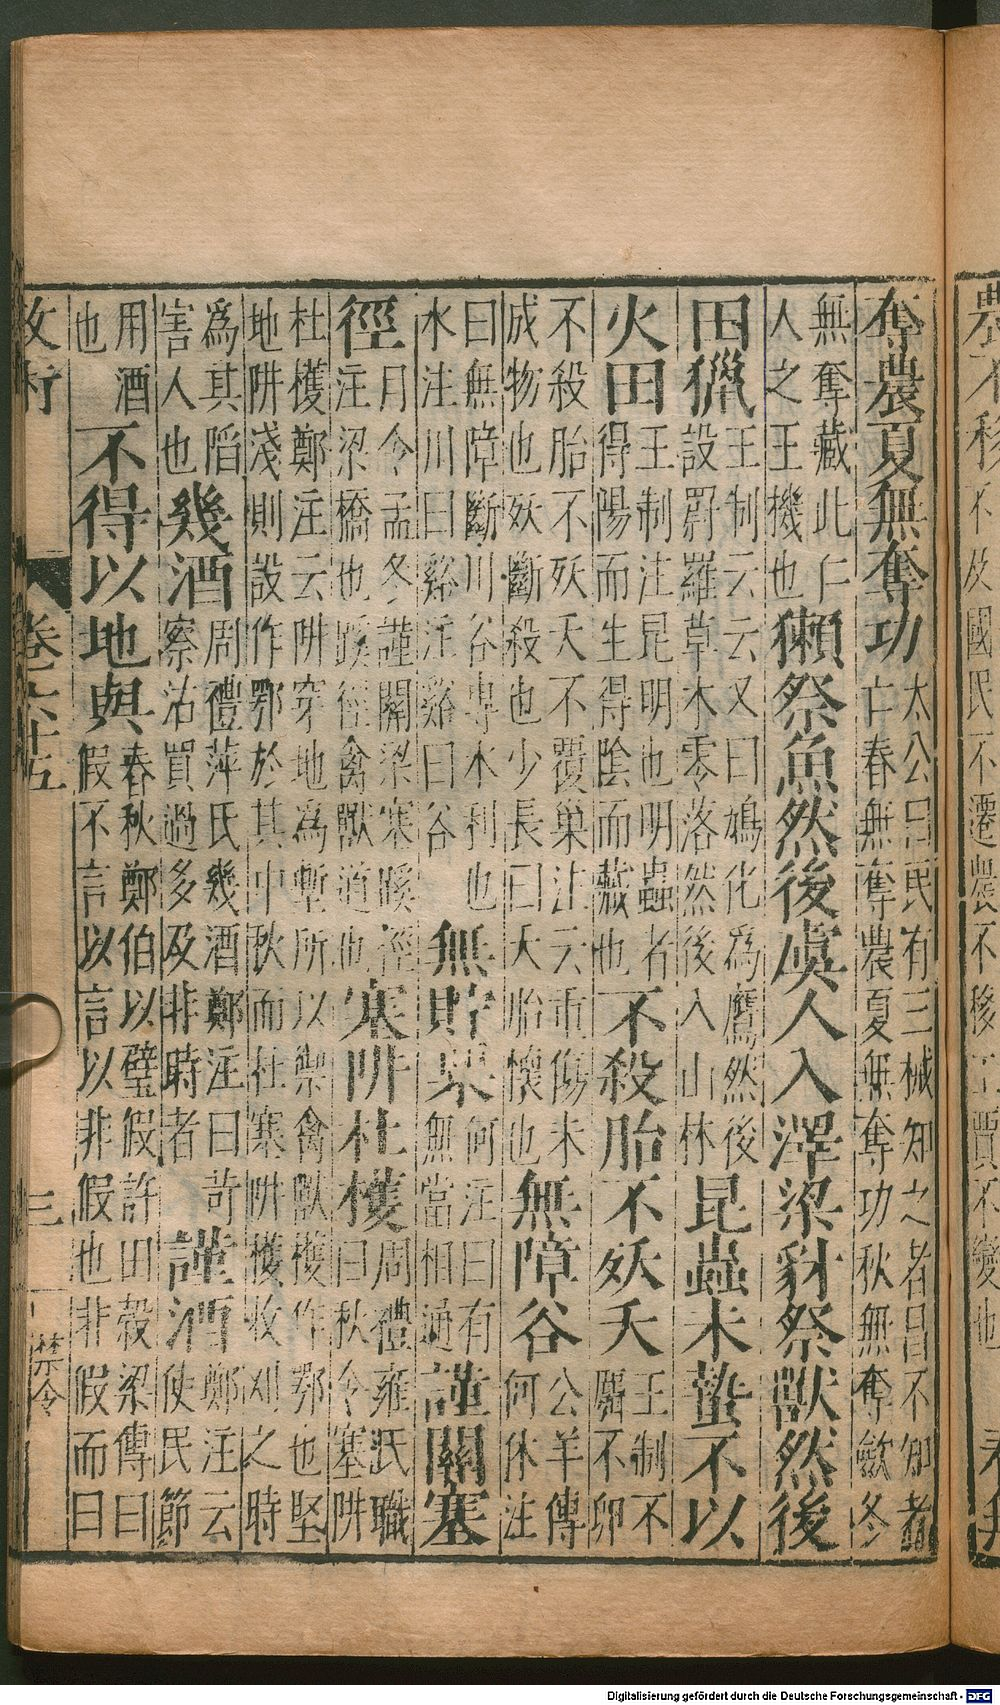 農不移 不及國民不遷農不移工賈不變也 春無
奪農夏無奪功
太公曰民有三械知之者昌不知者
亡春無奪農夏無奪功秋無奪歛冬
無奪藏此仁
人之王機也
獺祭魚然後虞人入澤梁豺祭獸然後
田獵
王制云云又曰鳩化為鷹然後
設罻羅草木零落然後入山林
昆蟲未蟄不以
火田
王制注昆明也明蟲者
得陽而生得陰而藏也
不殺胎不殀夭
王制不
麛不卵
不殺胎不殀夭不覆巢注云重傷未
成物也殀斷殺也少長曰夭胎懷也
無障谷
公羊傳
何休注
曰無障斷川谷專水利也
水注川曰谿注谿曰谷
無貯粟
何注曰有
無當相通
謹關塞
徑
月令孟冬謹關梁塞蹊徑
注梁橋也蹊徑禽獸道也
塞阱杜擭
周禮雍氏職
曰秋令塞阱
杜擭鄭注云阱穿地為塹所以禦禽獸擭作鄂也堅
地阱淺則設作鄂於其中秋而杜塞阱擭收刈之時
為其陷
害人也
幾酒
周禮萍氏幾酒鄭注曰苛
察沽買過多及非時者
謹酒
鄭注云
使民節
用酒
也
不得以地與
春秋鄭伯以璧假許田穀梁傳曰
假不言以言以非假也非假而曰
政術 卷六十五 三 禁令
Digitalisierung gefördert durch die Deutsche Forschungsgemeinschaft - DFG